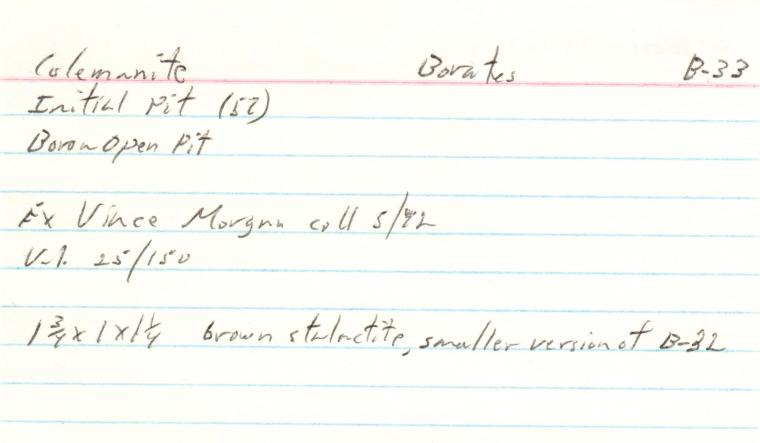 Colemanite Borates B-33
Initial Pit (52)
Boron Open Pit
Ex Vince Morgan coll 5/92
Val. 25/150
1 3/4 x 1 x 1 1/4 brown stalactite, smaller version of B-32